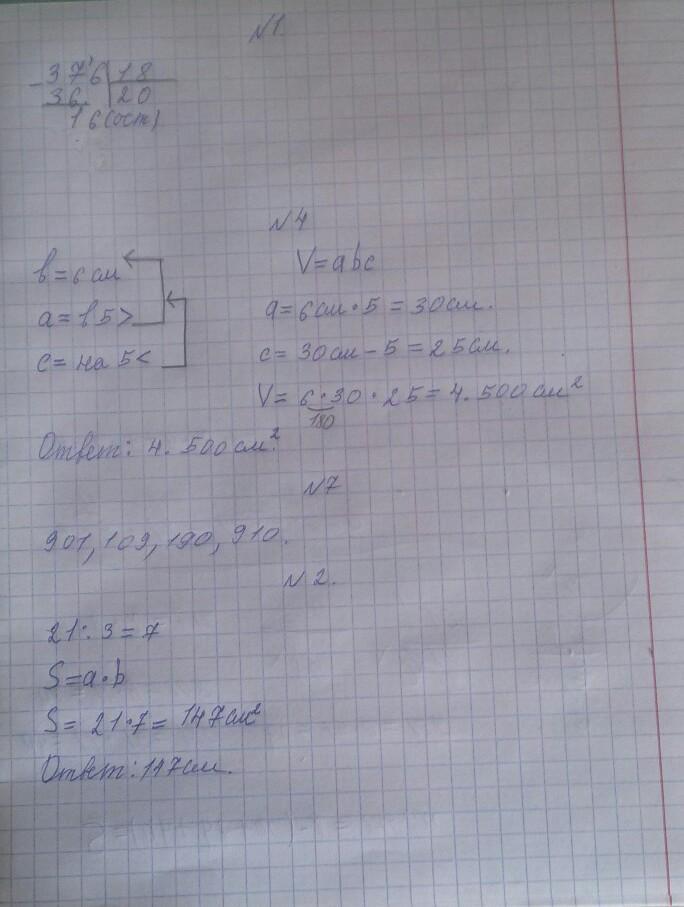 №1.
376 | 18
36 | 20
16 (ост)
№4
b = 6 см
a = в 5 >
c = на 5 <
V = abc
a = 6см · 5 = 30см.
c = 30см - 5 = 25см.
V = 6 · 30 · 25 = 4.500 см²
180
Ответ: 4. 500 см².
№7
901, 109, 190, 910.
№2.
21 : 3 = 7
S = a · b
S = 21 · 7 = 147 см²
Ответ: 147 см.